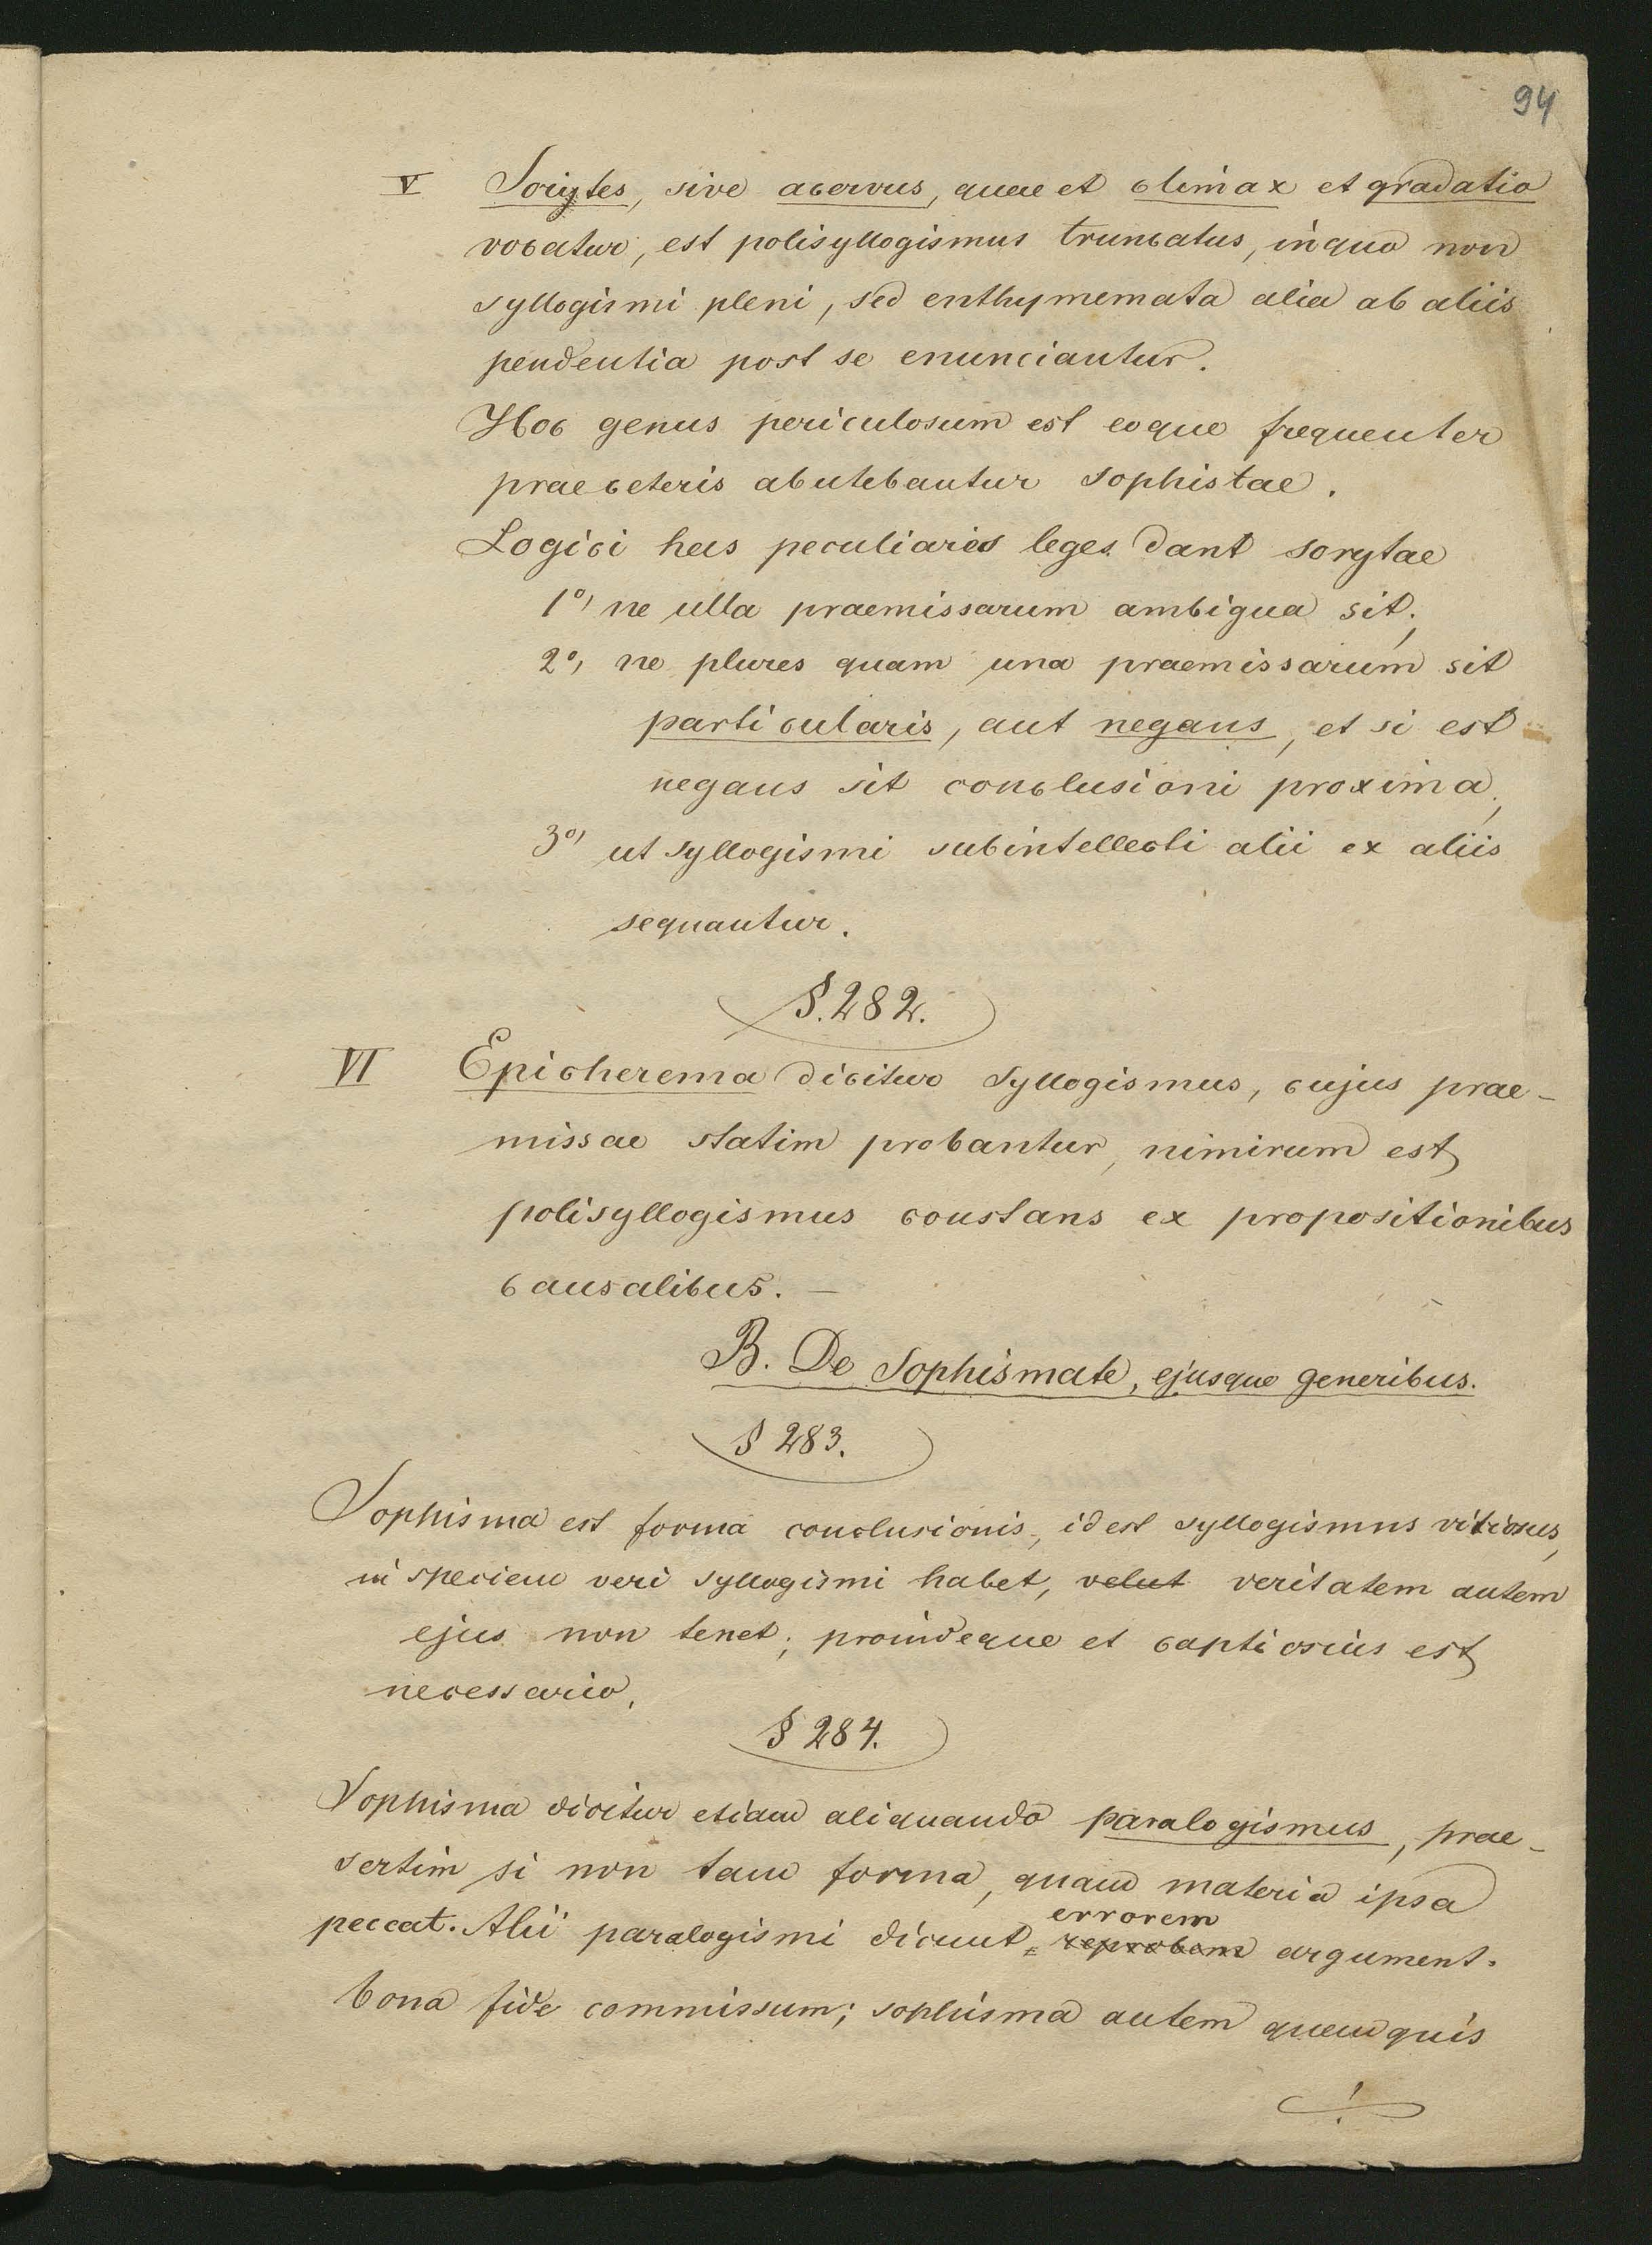 94
V Sorytes, sive acervus, quae et climax et gradatio
vocatur, est polisyllogismus truncatus, in quo non
syllogismi pleni, sed enthymemata alia ab aliis
pendentia post se enunciantur.
Hoc genus periculosum est eoque frequenter
prae ceteris abutebantur sophistae.
Logici has peculiares leges dant sorytae
1o, ne ulla praemissarum ambigua sit;
2o, ne plures quam una praemissarum sit
particularis, aut negans, et si est
negans sit conclusioni proxima;
3o, ut syllogismi subintellecti alii ex aliis
sequantur.
§. 282.
VI Epicherema dicitur syllogismus, cujus prae-
missae statim probantur, nimirum est
polisyllogismus constans ex propositionibus
causalibus. —
B. De Sophismate, ejusque generibus.
§ 283.
Sophisma est forma conclusionis, id est syllogismus vitiosus,
in speciem veri syllogismi habet, velut veritatem autem
ejus non tenet; proindeque et captiosius est
necessario.
§ 284.
Sophisma dicitur etiam aliquando paralogismus, prae-
sertim si non tam forma, quam materia ipsa
errorem
peccat. Alii paralogismi dicunt = argument.
bona fide commissum; sophisma autem quem quis